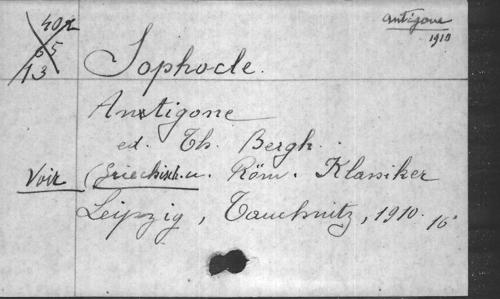 Antigone
1910
65
13
Sophocle.
Antigone
ed. Th. Bergh.
Voir Griechisch. u. Röm. Klassiker
Leipzig, Tauchnitz, 1910. 16°